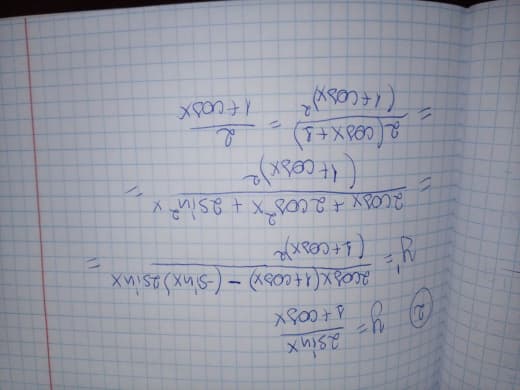 ② y = 2sinx / 1+cosx
y' = 2cosx(1+cosx) - (-sinx)2sinx / (1+cosx)² =
= 2cosx + 2cos²x + 2sin²x / (1+cosx)² =
= 2(cosx+1) / (1+cosx)² = 2 / 1+cosx